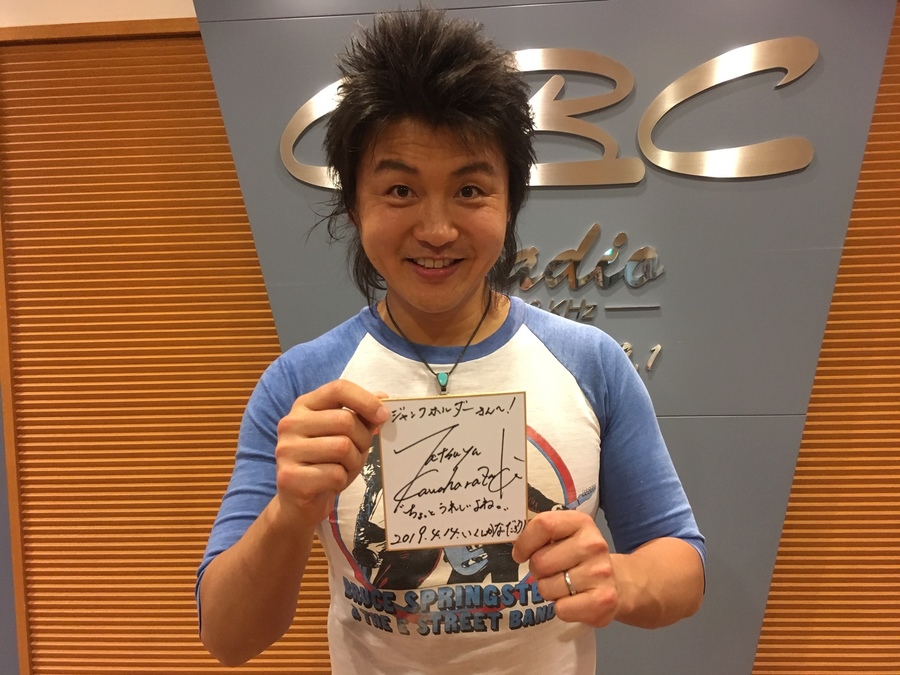 CBC
Radio
KHz
.1
ジャンクホルダーさんへ!
Tatsuya
Kawaharazaki
ちょっとうれしいよね。
2019.4.14.
BRUCE SPRINGSTE
& THE E STREET BAND